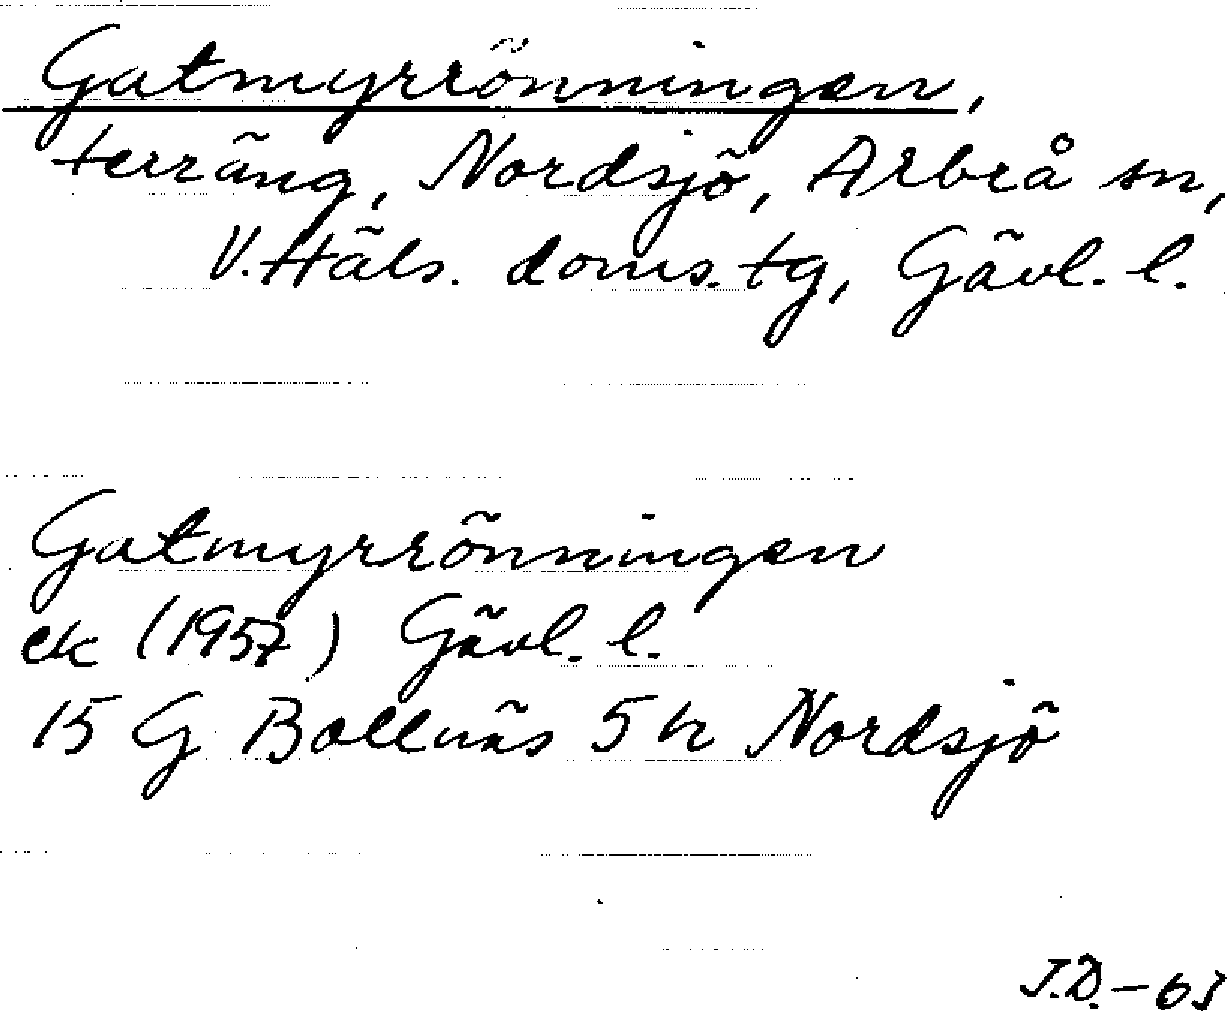 Gatmyrrönningen,
terräng, Nordsjö, Arbrå sn,
V. Häls. doms. tg, Gävl. l.
Gatmyrrönningen
ek (1957) Gävl. l.
15 G Bollnäs 5 h Nordsjö
J.D. – 63